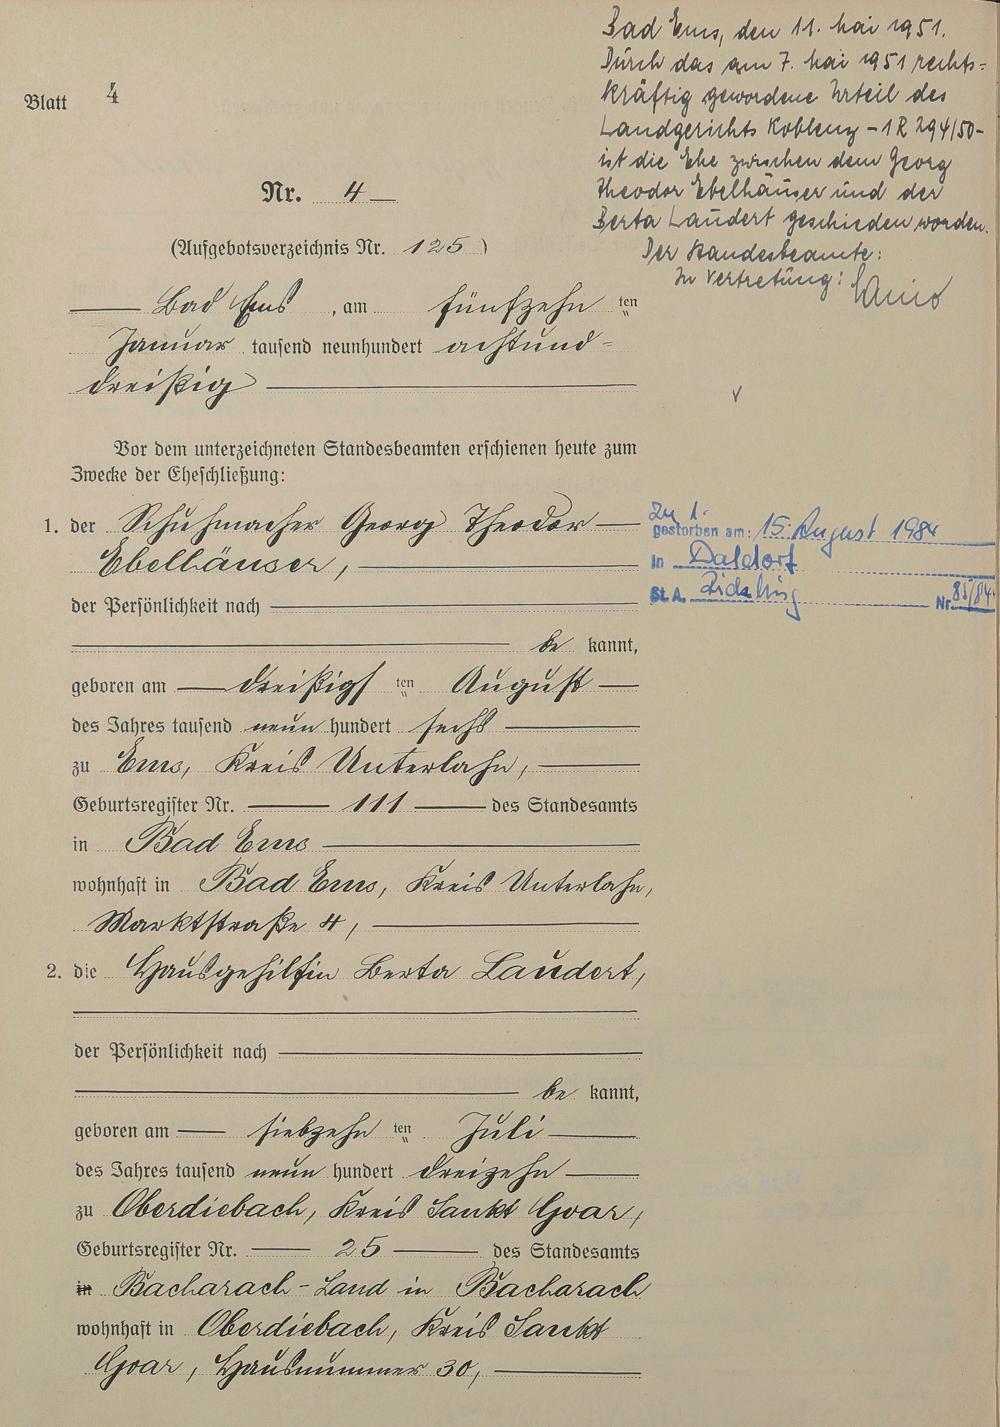 Bad Ems, den 11. Mai 1951.
Durch das am 7. Mai 1951 rechts=
kräftig gewordene Urteil des
Landgerichts Koblenz - 1 R 294/50 -
ist die Ehe zwischen dem Georg
Theodor Ebelhäuser und der
Berta Laudert geschieden worden.
Der Standesbeamte:
In Vertretung:
Blatt 4
Nr. 4
(Aufgebotsverzeichnis Nr. 125)
Bad Ems, am fünfzehn ten
Januar tausend neunhundert achtund=
dreißig
Vor dem unterzeichneten Standesbeamten erschienen heute zum
Zwecke der Eheschließung:
1. der Schuhmacher Georg Theodor
Ebelhäuser,
zu 1.
gestorben am: 15. August 1984
in Daldorf
St. A. Nr. 85/84
der Persönlichkeit nach
be kannt,
geboren am dreißigs ten August
des Jahres tausend neun hundert sechs
zu Ems, Kreis Unterlahn,
Geburtsregister Nr. 111 des Standesamts
in Bad Ems
wohnhaft in Bad Ems, Kreis Unterlahn,
Marktstraße 4,
2. die Hausgehilfin Berta Laudert,
der Persönlichkeit nach
be kannt,
geboren am siebzehn ten Juli
des Jahres tausend neun hundert dreizehn
zu Oberdiebach, Kreis Sankt Goar,
Geburtsregister Nr. 25 des Standesamts
in Bacharach-Land in Bacharach
wohnhaft in Oberdiebach, Kreis Sankt
Goar, Hausnummer 30,